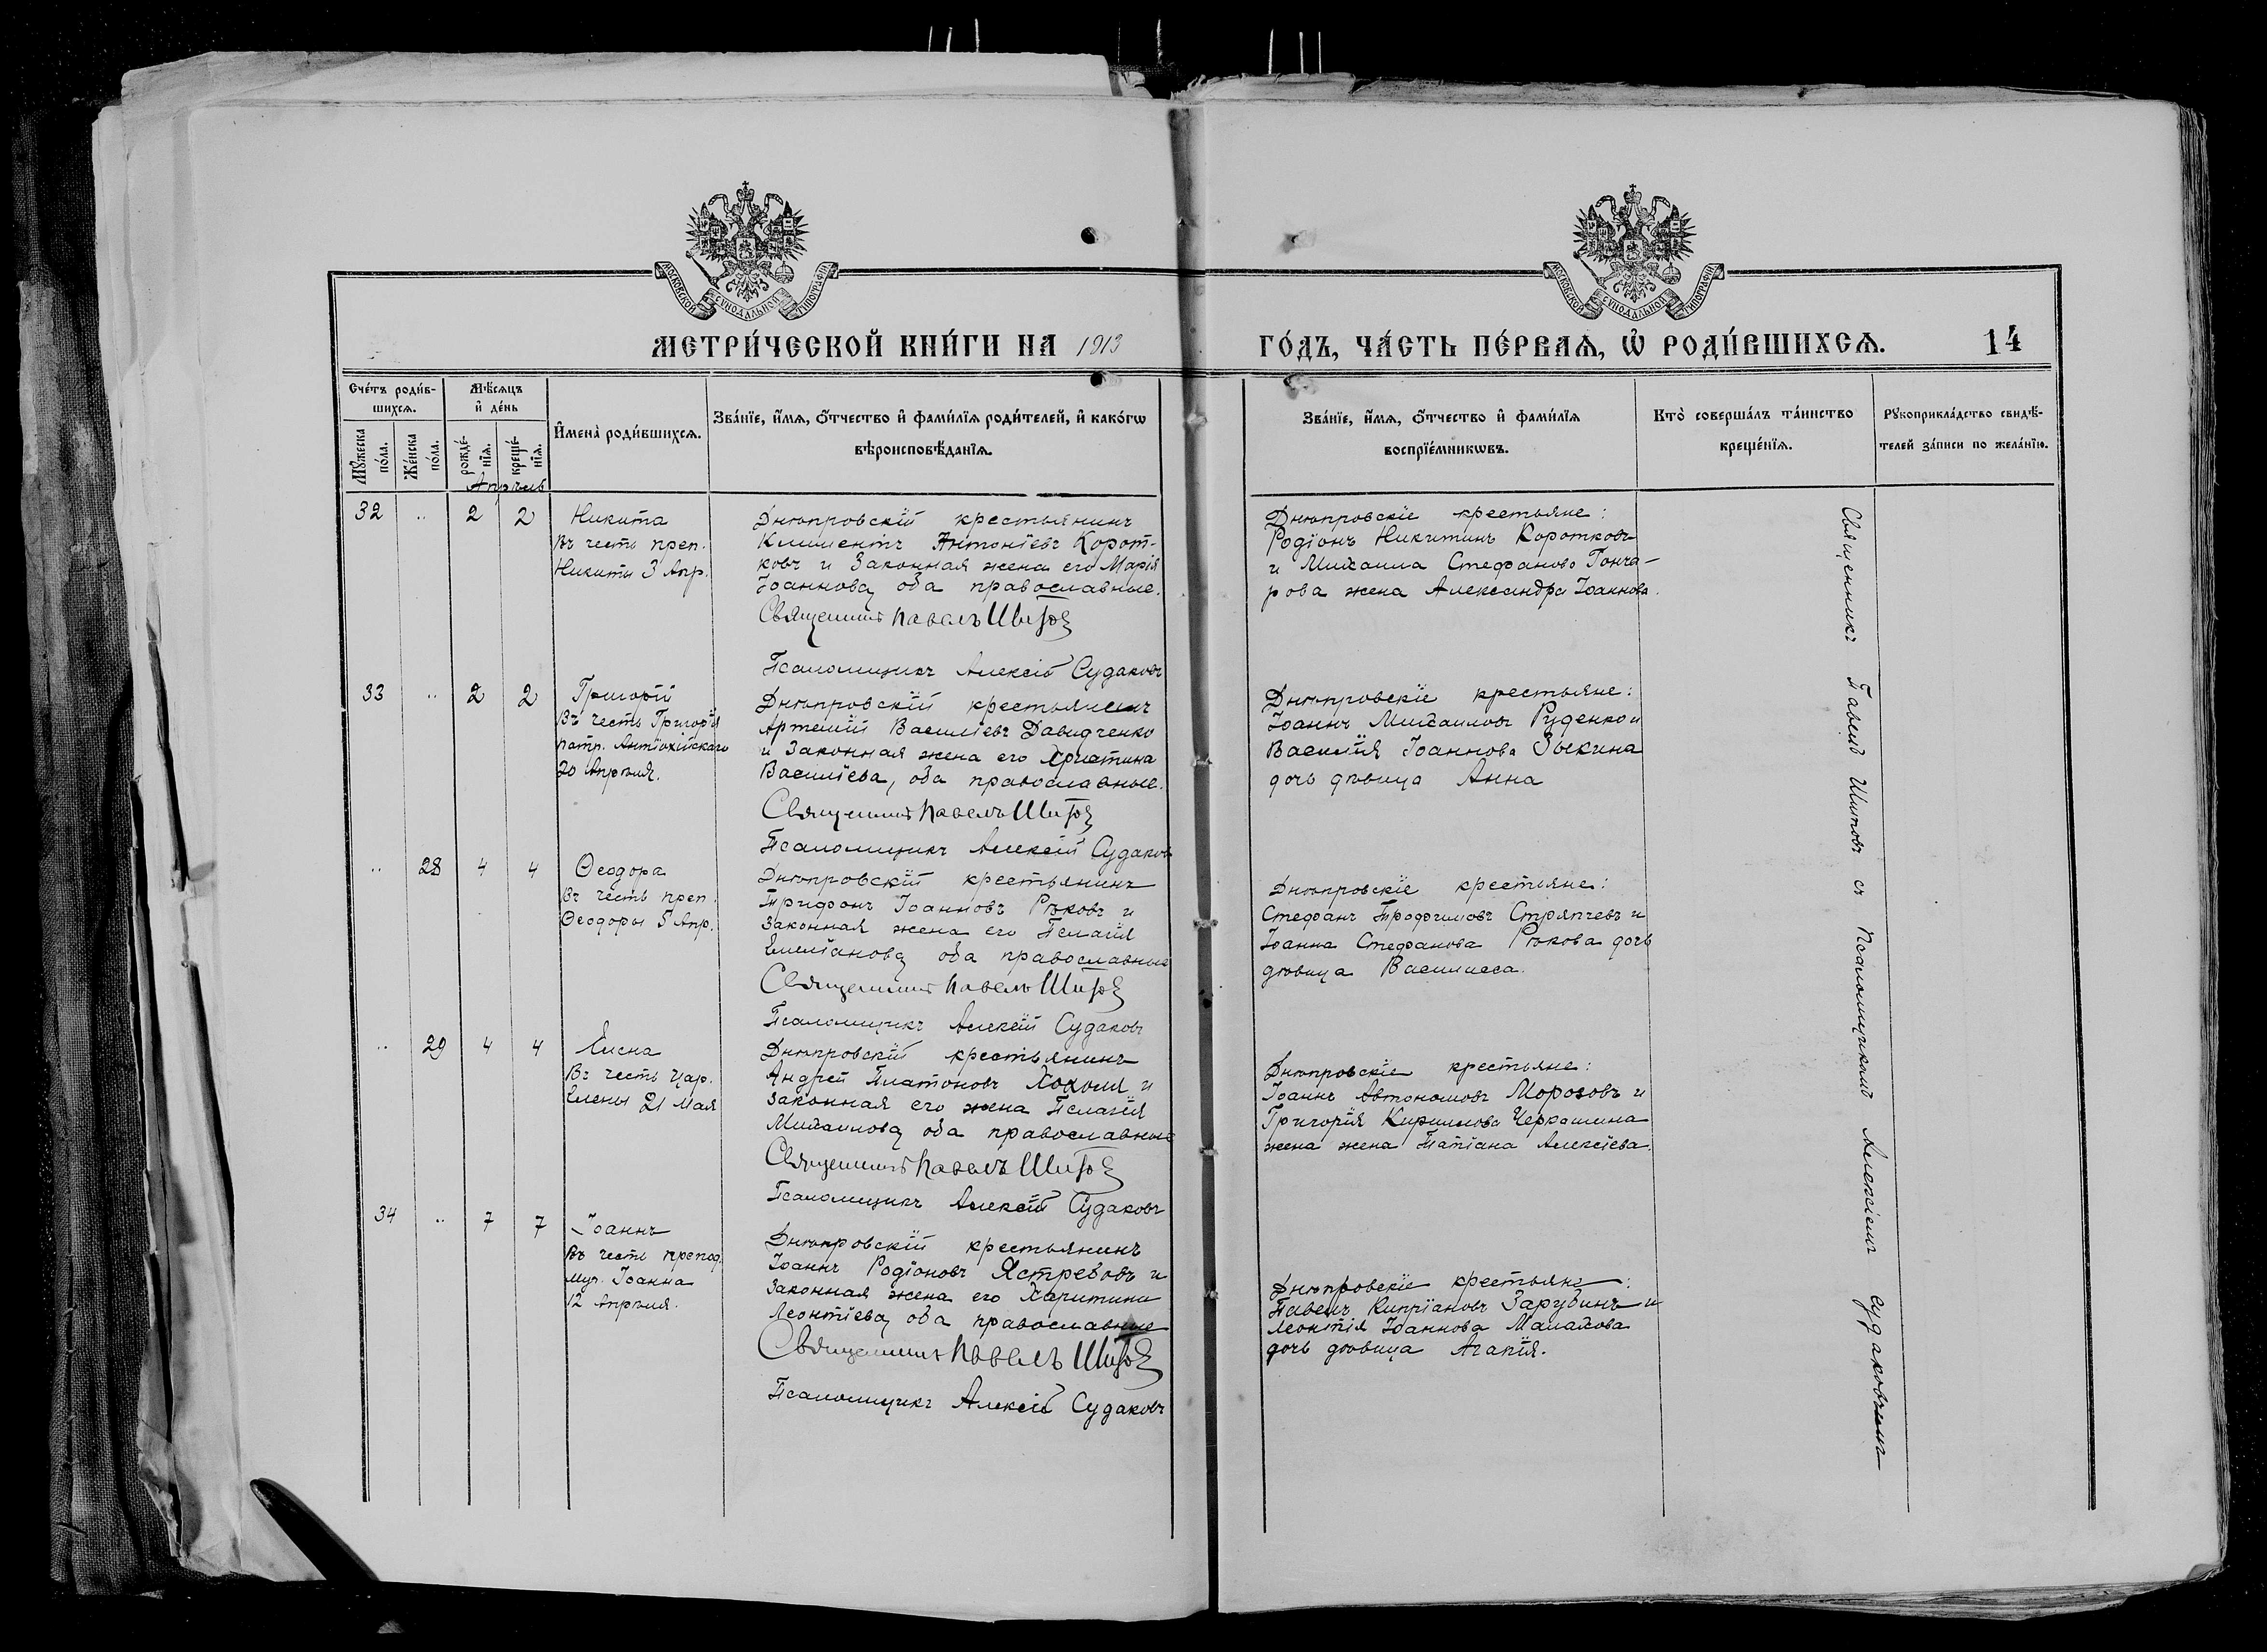 МОСКОВСКОЙ СѴНОДАЛЬНОЙ ТИПОГРАФІИ
МОСКОВСКОЙ СѴНОДАЛЬНОЙ ТИПОГРАФІИ
МЕТРИ́ЧЕСКОЙ КНИ́ГИ НА 1913
ГО́ДЪ, ЧА́СТЬ ПЕ́РВАѦ, Ѡ РОДИ́ВШИХСѦ.
14
Сче́тъ роди́в-
шихсѧ.
Мꙋ́жеска
по́ла.
Же́нска
по́ла.
Мѣ́сѧцъ
и҆ де́нь
рожде́-
нїѧ.
креще́-
нїѧ.
И҆мена̀ роди́вшихсѧ.
Зва́нїе, и҆́мѧ, ѻ҆́тчество и҆ фами́лїѧ роди́телей, и҆ како́гѡ
вѣроисповѣ́данїѧ.
Зва́нїе, и҆́мѧ, ѻ҆́тчество и҆ фами́лїѧ
воспрїе́мникѡвъ.
Кто̀ соверша́лъ та́инство
креще́нїѧ.
Рꙋкоприкла́дство свидѣ́-
телей за́писи по жела́нїю.
Апрѣль
32 .. 2 2
Никита
Въ честь преп.
Никиты 3 Апр.
Днѣпровскій крестьянинъ
Климентъ Антоніевъ Корот-
ковъ и Законная жена его Марія
Іоаннова, оба православные.
Священникъ Павелъ Шитовъ
Псаломщикъ Алексій Судаковъ
Днѣпровскіе крестьяне:
Родіонъ Никитинъ Коротковъ
и Михаила Стефанова Гонча-
рова жена Александра Іоаннова.
33 .. 2 2
Григорій
Въ честь Григорія
патр. Антіохійскаго
20 Апрѣля.
Днѣпровскій крестьянинъ
Артемій Василіевъ Давидченко
и Законная жена его Христина
Василіева, оба православные.
Священникъ Павелъ Шитовъ
Псаломщикъ Алексій Судаковъ
Днѣпровскіе крестьяне:
Іоаннъ Михаиловъ Руденко и
Василія Іоаннова Зыкина
дочь дѣвица Анна
.. 28 4 4
Ѳеодора
Въ честь преп.
Ѳеодоры 5 Апр.
Днѣпровскій крестьянинъ
Трифонъ Іоанновъ Рѣковъ и
Законная жена его Пелагія
Емеліанова, оба православные
Священникъ Павелъ Шитовъ
Псаломщикъ Алексій Судаковъ
Днѣпровскіе крестьяне:
Стефанъ Трофимовъ Стряпчевъ и
Іоанна Стефанова Рѣкова дочь
дѣвица Василисса.
.. 29 4 4
Елена
Въ честь цар.
Елены 21 Мая
Днѣпровскій крестьянинъ
Андрей Платоновъ Хохоля и
Законная его жена Пелагія
Михаилова, оба православные
Священникъ Павелъ Шитовъ
Псаломщикъ Алексій Судаковъ
Днѣпровскіе крестьяне:
Іоаннъ Автономовъ Морозовъ и
Григорія Кириллова Черкашина
жена жена Татіана Алексіева.
34 .. 7 7
Іоаннъ
Въ честь препод.
муч. Іоанна
12 Апрѣля.
Днѣпровскій крестьянинъ
Іоаннъ Родіоновъ Ястребовъ и
Законная жена его Харитина
Леонтіева, оба православные
Священникъ Павелъ Шитовъ
Псаломщикъ Алексій Судаковъ
Днѣпровскіе крестьяне:
Павелъ Кипріановъ Зарубинъ и
Леонтія Іоаннова Малахова
дочь дѣвица Агапія.
Священникъ Павелъ Шитовъ съ Псаломщикомъ Алексіемъ Судаковымъ